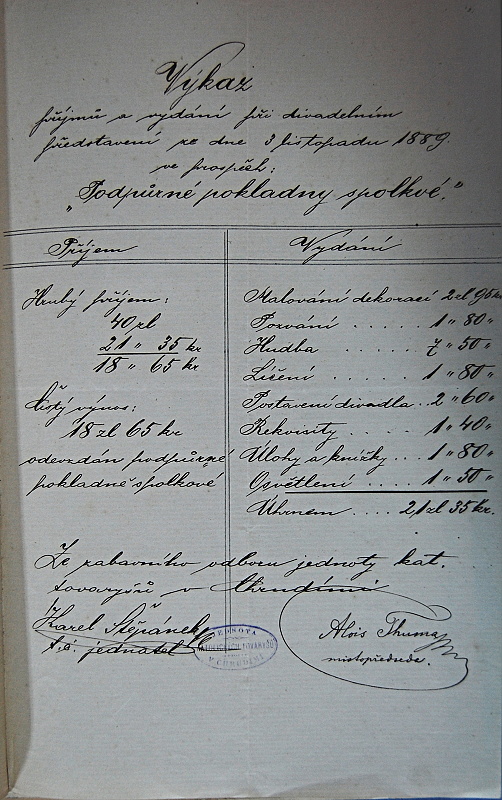 Výkaz
příjmů a vydání při divadelním
představení ze dne 3 listopadu 1889.
ve prospěch:
"Podpůrné pokladny spolkové."
Příjem
Hrubý příjem:
40 zl
21 " 35 kr
18 " 65 kr
Čistý výnos:
18 zl 65 kr
odevzdán podpůrné
pokladně spolkové
Vydání
Malování dekorací 2 zl 95 kr
Pozvání ..... 1 " 80 "
Hudba ..... 7 " 50 "
Líčení ..... 1 " 80 "
Postavení divadla .. 2 " 60 "
Rekvisity ..... 1 " 40 "
Úlohy a knížky .... 1 " 80 "
Osvětlení .... 1 " 50 "
Úhrnem .... 21 zl 35 kr.
Ze zábavního odboru jednoty kat.
tovaryšů v Chrudimi
Karel Štěpánek
t. č. jednatel
JEDNOTA
V CHRUDIMI
Alois Thuma
místopředseda.